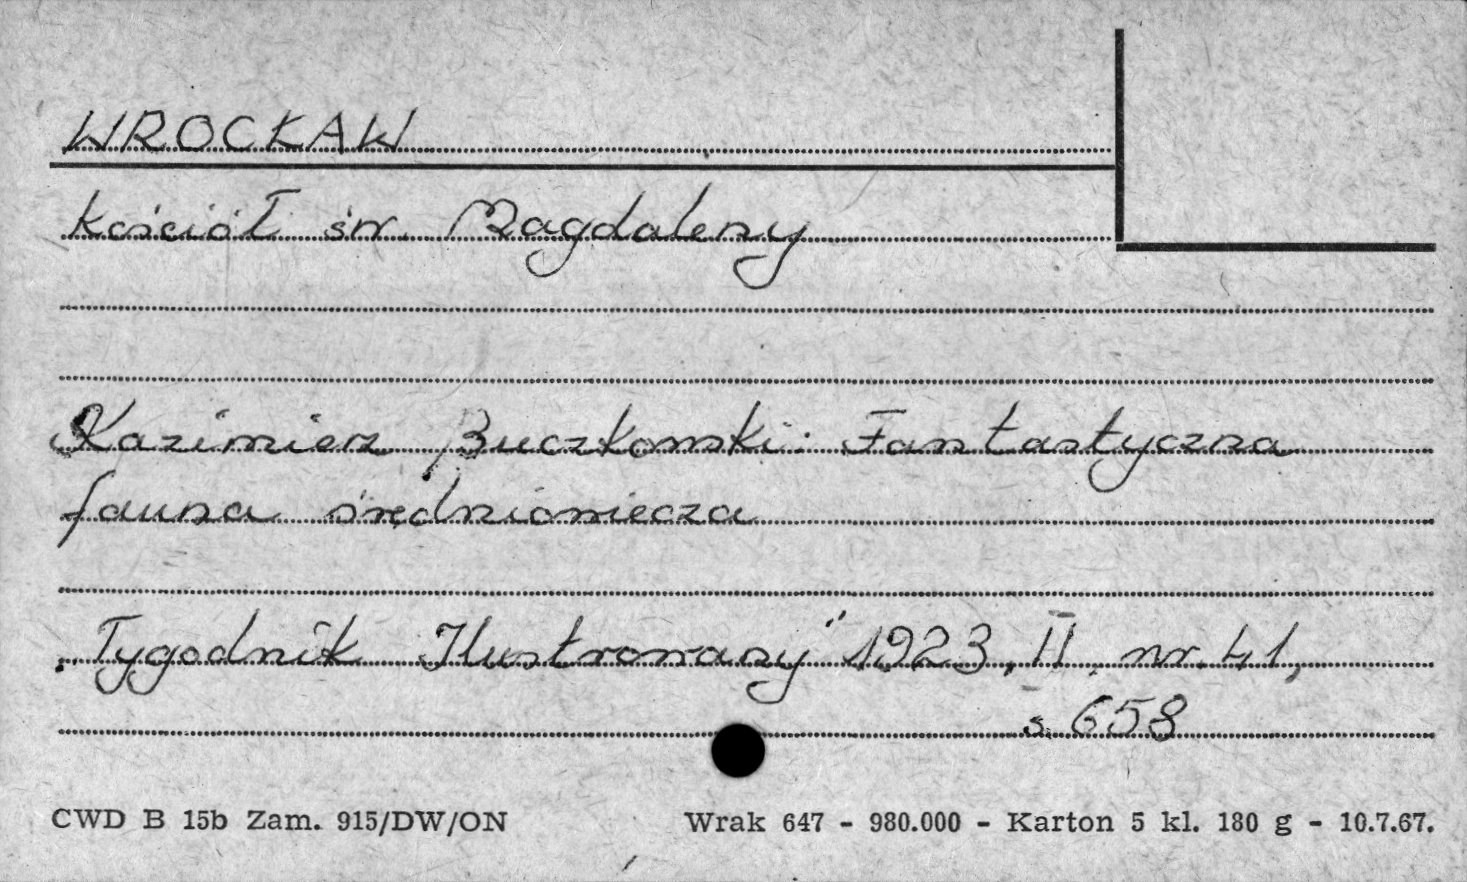 WROCŁAW
kościół św. Magdaleny
Kazimierz Buczkowski: Fantastyczna
fauna średniowiecza
„Tygodnik Ilustrowany" 1923, II, nr. 41,
s. 658
CWD B 15b Zam. 915/DW/ON Wrak 647 - 980.000 - Karton 5 kl. 180 g - 10.7.67.